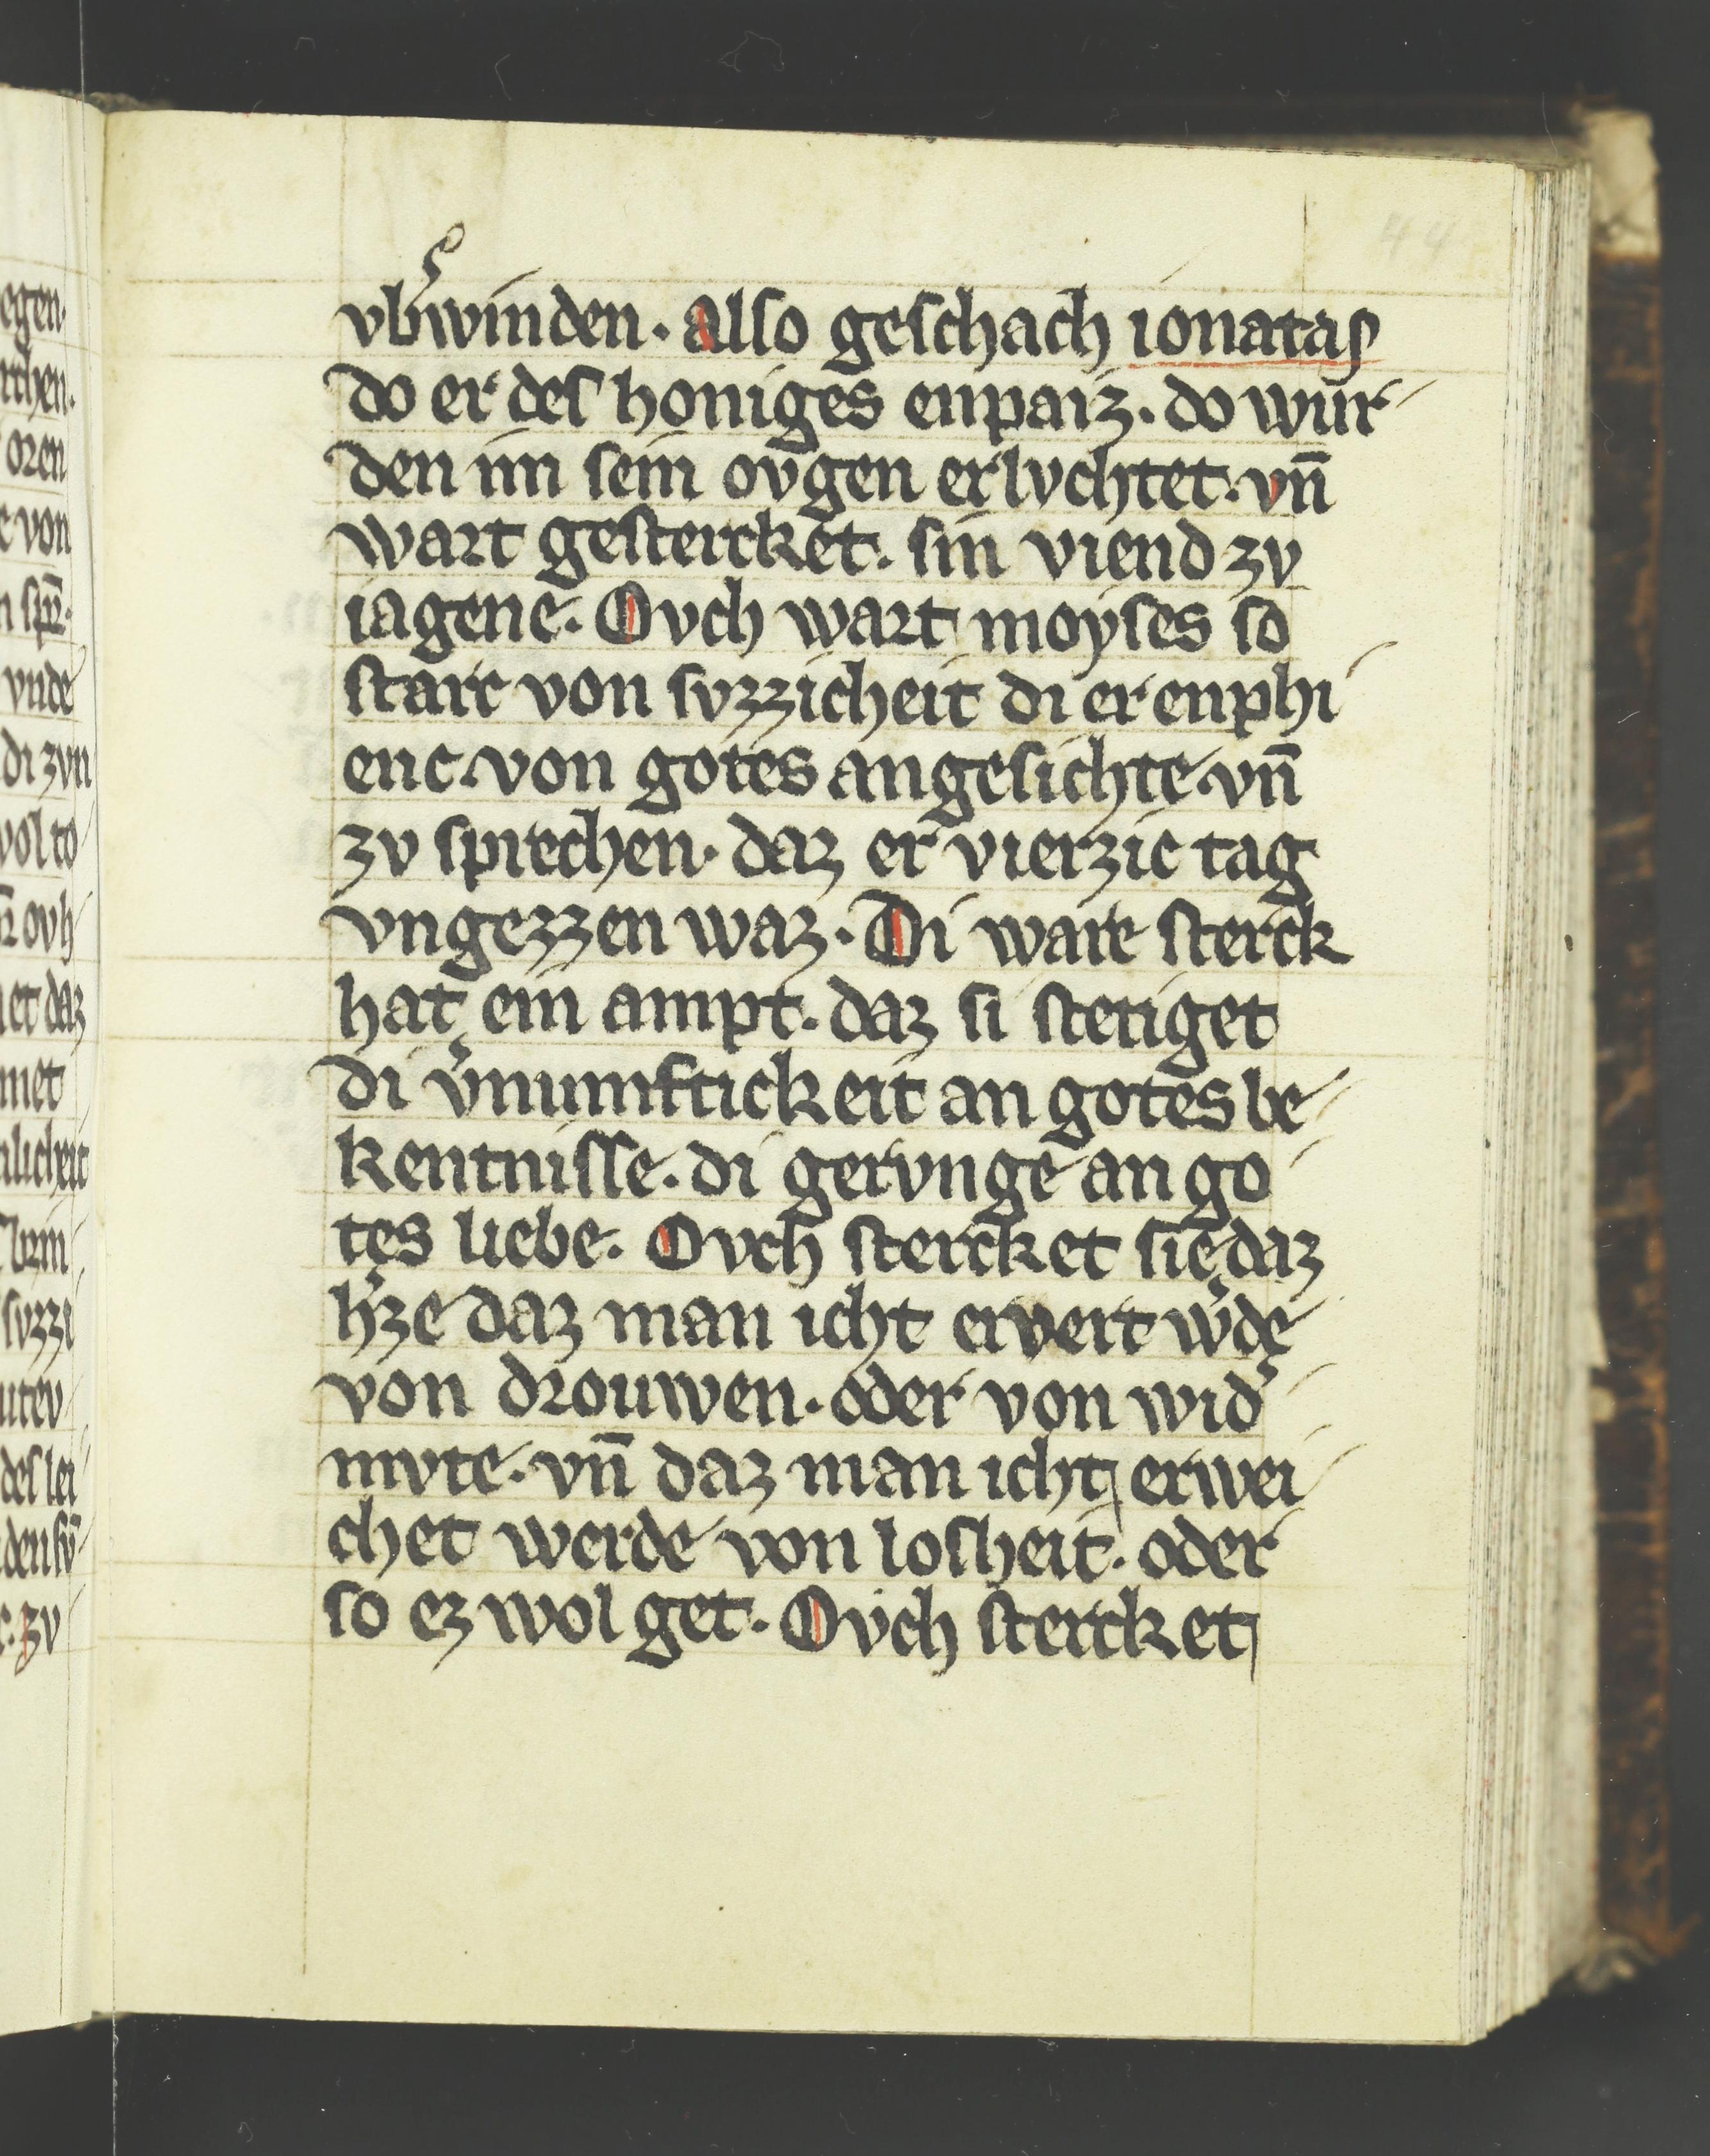 44
vb᷑winden. also geschach ionatas
do er des honiges enpaiz. do wur
den im sein ovgen erlvchtet. vn̄
wart gestercket. sin viend zv
iagene. Ovch wart moyses so
starc von svzzicheit di er enphi
enc. von gotes angesichte. vn̄
zv sprechen. daz er vierzic tag
vngezzen waz. Di ware sterck
hat ein ampt. daz si stetiget
di v᷑nunnfticKeit an gotes be
kentnisse. di gervnge an go
tes liebe. Ovch stercket sie daz
h᷑ze daz man icht ervert w᷑de
von drouwen. oder von wid᷑
mvte. vn̄ daz man icht erwei
chet werde von losheit. oder
so ez wol get. Ovch stercket